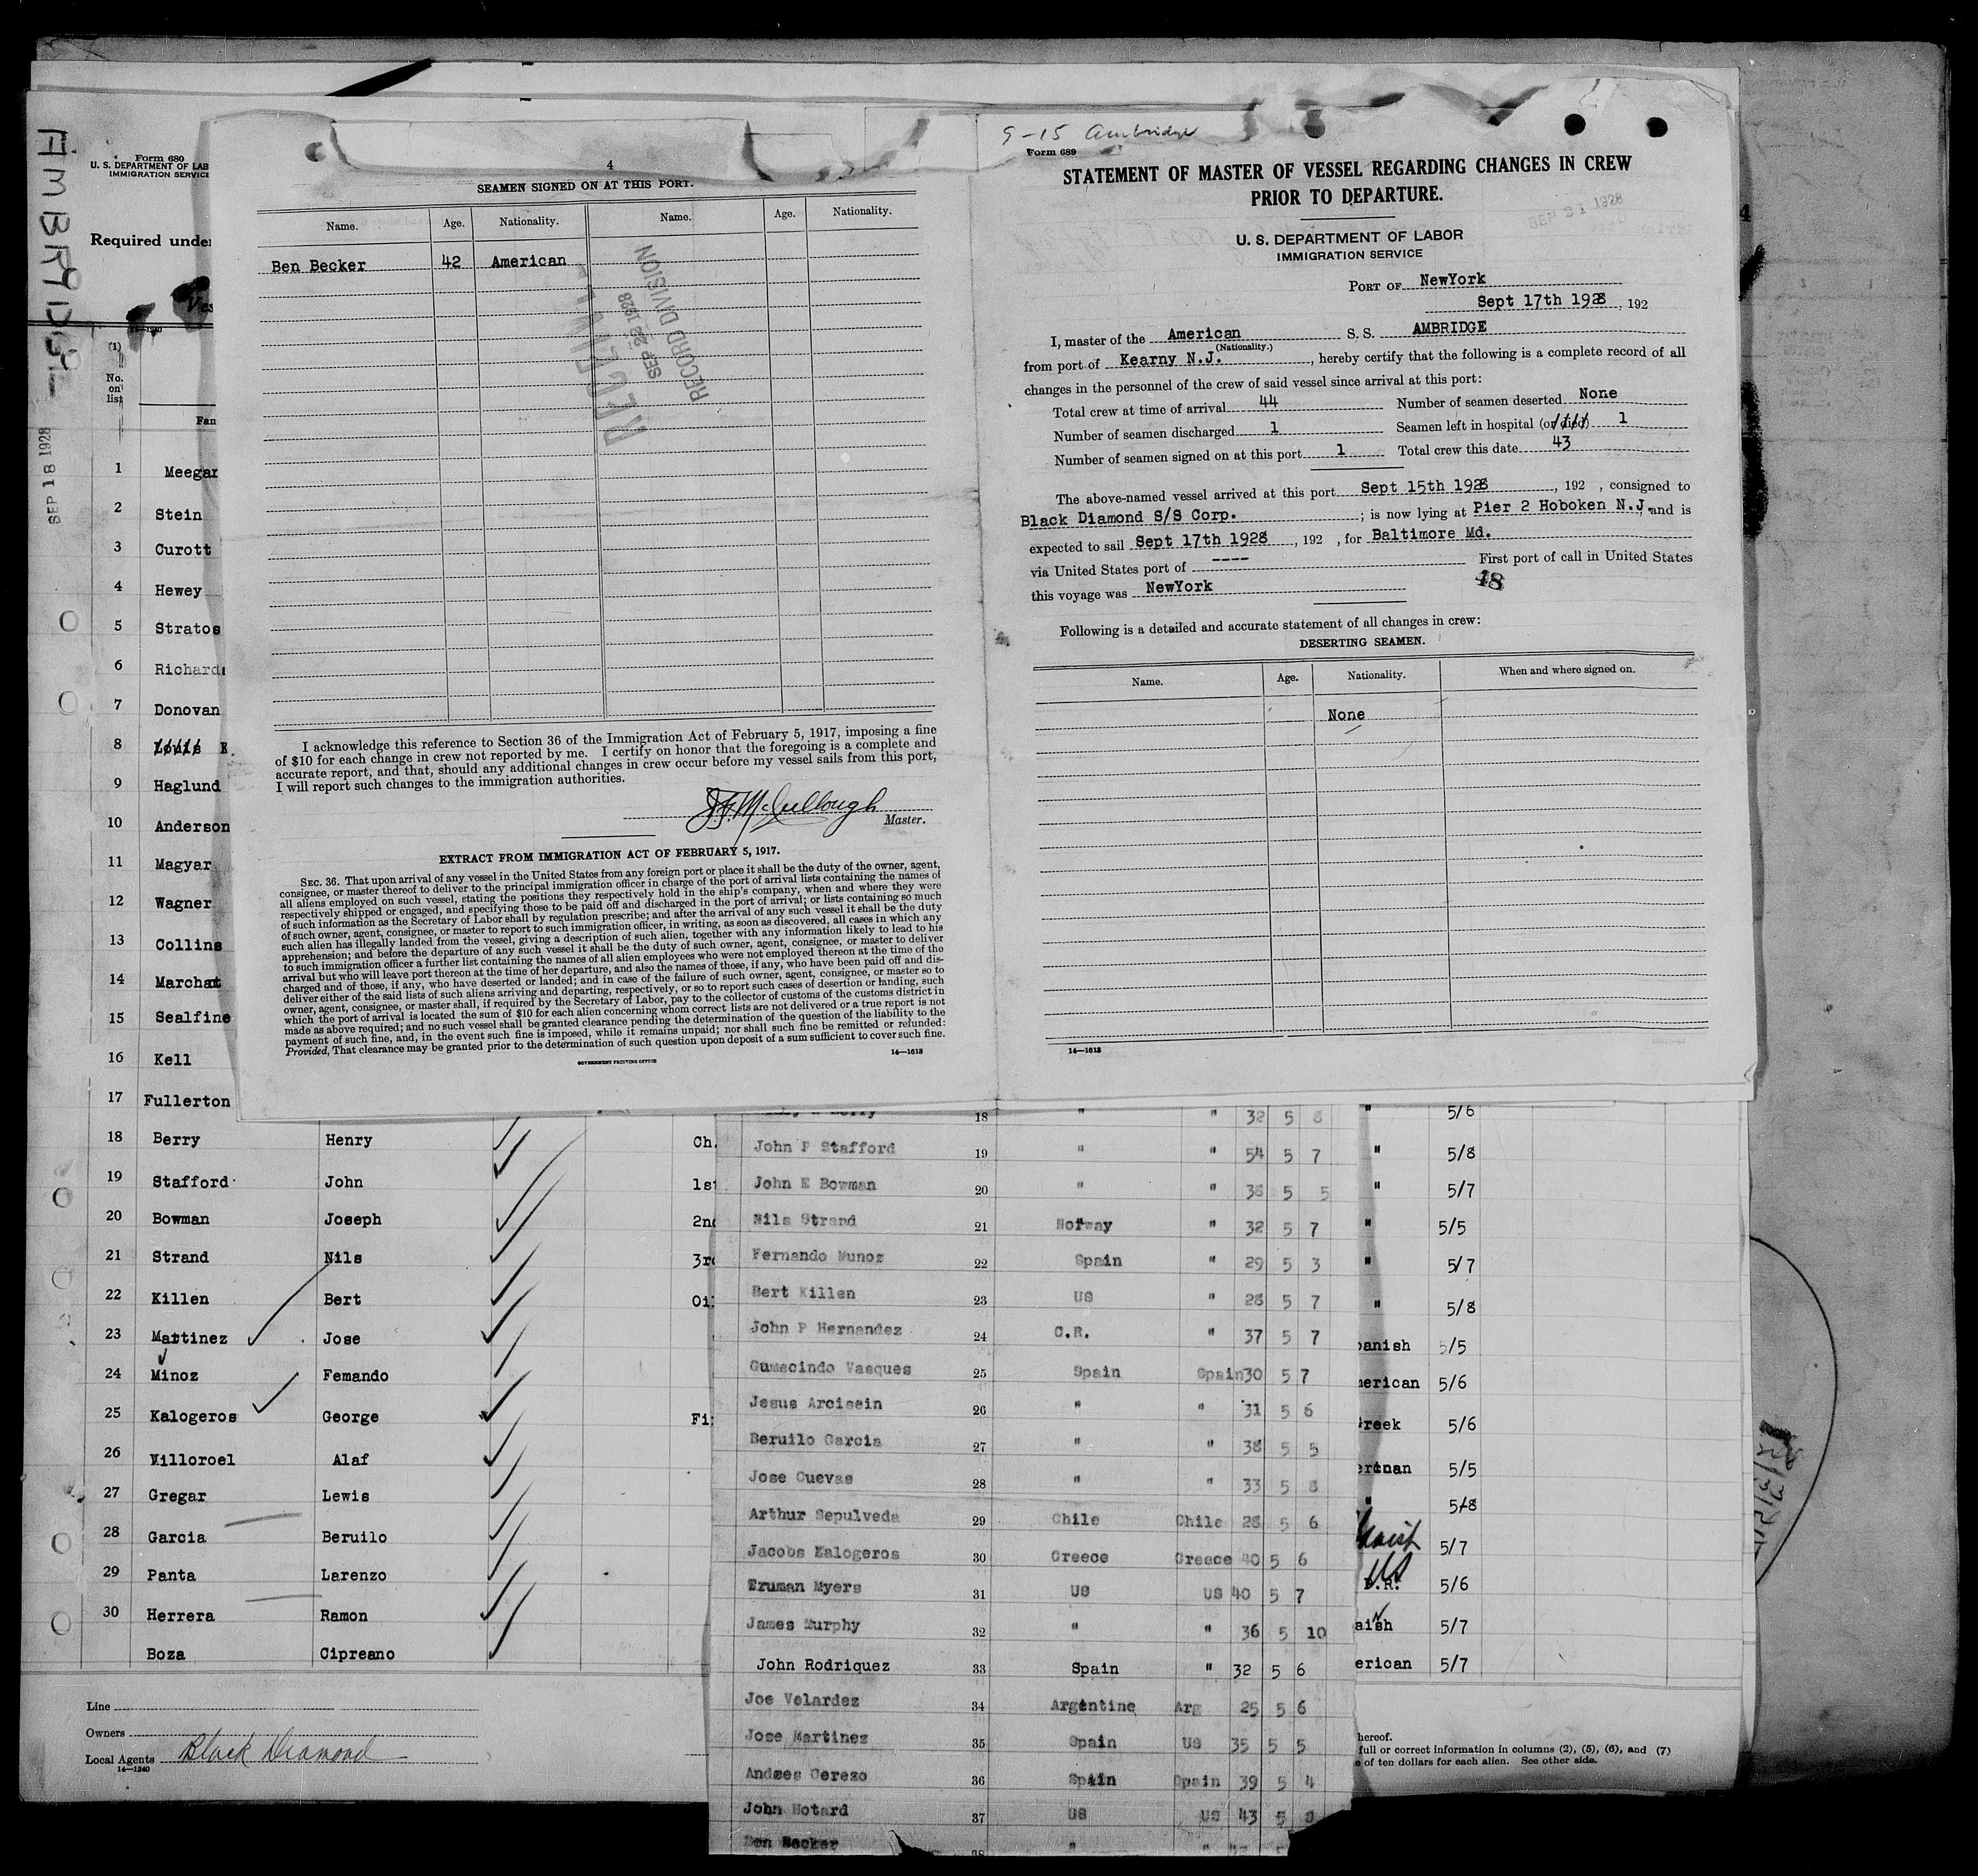 AMBRIDGE
SEP 18 1928
Form 680
U. S. DEPARTMENT OF LAB
IMMIGRATION SERVICE
Required unde
Ves
14—1240
(1)
No. on list
Fan
1 Meegan
2 Stein
3 Curott
4 Hewey
5 Stratos
6 Richard
7 Donovan
8 Louis E.
9 Haglund
10 Anderson
11 Magyar
12 Wagner
13 Collins
14 Marchat
15 Sealfine
16 Kell
17 Fullerton
18 Berry Henry Ch.
19 Stafford John 1st
20 Bowman Joseph 2nd
21 Strand Nils 3rd
22 Killen Bert Oi
23 Martinez Jose
24 Minoz Femando
25 Kalogeros George Fi
26 Villoroel Alaf
27 Gregar Lewis
28 Garcia Beruilo
29 Panta Larenzo
30 Herrera Ramon
Boza Cipreano
Line
Owners
Local Agents Black Diamond
14—1240
4
SEAMEN SIGNED ON AT THIS PORT.
Name. Age. Nationality. Name. Age. Nationality.
Ben Becker 42 American
RECEIVED
SEP 22 1928
RECORD DIVISION
I acknowledge this reference to Section 36 of the Immigration Act of February 5, 1917, imposing a fine
of $10 for each change in crew not reported by me. I certify on honor that the foregoing is a complete and
accurate report, and that, should any additional changes in crew occur before my vessel sails from this port,
I will report such changes to the immigration authorities.
J.F. McCullough
Master.
EXTRACT FROM IMMIGRATION ACT OF FEBRUARY 5, 1917.
SEC. 36. That upon arrival of any vessel in the United States from any foreign port or place it shall be the duty of the owner, agent,
consignee, or master thereof to deliver to the principal immigration officer in charge of the port of arrival lists containing the names of
all aliens employed on such vessel, stating the positions they respectively hold in the ship's company, when and where they were
respectively shipped or engaged, and specifying those to be paid off and discharged in the port of arrival; or lists containing so much
of such information as the Secretary of Labor shall by regulation prescribe; and after the arrival of any such vessel it shall be the duty
of such owner, agent, consignee, or master to report to such immigration officer, in writing, as soon as discovered, all cases in which any
such alien has illegally landed from the vessel, giving a description of such alien, together with any information likely to lead to his
apprehension; and before the departure of any such vessel it shall be the duty of such owner, agent, consignee, or master to deliver
to such immigration officer a further list containing the names of all alien employees who were not employed thereon at the time of the
arrival but who will leave port thereon at the time of her departure, and also the names of those, if any, who have been paid off and dis-
charged and of those, if any, who have deserted or landed; and in case of the failure of such owner, agent, consignee, or master so to
deliver either of the said lists of such aliens arriving and departing, respectively, or so to report such cases of desertion or landing, such
owner, agent, consignee, or master shall, if required by the Secretary of Labor, pay to the collector of customs of the customs district in
which the port of arrival is located the sum of $10 for each alien concerning whom correct lists are not delivered or a true report is not
made as above required; and no such vessel shall be granted clearance pending the determination of the question of the liability to the
payment of such fine, and, in the event such fine is imposed, while it remains unpaid; nor shall such fine be remitted or refunded:
Provided, That clearance may be granted prior to the determination of such question upon deposit of a sum sufficient to cover such fine.
GOVERNMENT PRINTING OFFICE
14—1613
9-15 Ambridge
Form 689
STATEMENT OF MASTER OF VESSEL REGARDING CHANGES IN CREW
PRIOR TO DEPARTURE.
SEP 21 1928
U. S. DEPARTMENT OF LABOR
IMMIGRATION SERVICE
PORT OF NewYork
Sept 17th 1928, 192
I, master of the American S. S. AMBRIDGE
(Nationality.)
from port of Kearny N.J., hereby certify that the following is a complete record of all
changes in the personnel of the crew of said vessel since arrival at this port:
Total crew at time of arrival 44 Number of seamen deserted None
Number of seamen discharged 1 Seamen left in hospital (or died) 1
Number of seamen signed on at this port 1 Total crew this date 43
The above-named vessel arrived at this port Sept 15th 1928, 192 , consigned to
Black Diamond S/S Corp. ; is now lying at Pier 2 Hoboken N.J. and is
expected to sail Sept 17th 1928, 192 , for Baltimore Md.
via United States port of ---- First port of call in United States
this voyage was NewYork
48
Following is a detailed and accurate statement of all changes in crew:
DESERTING SEAMEN.
Name. Age. Nationality. When and where signed on.
None
14—1613
4
18 " " 32 5 8 " 5/6
John P Stafford 19 " " 54 5 7 " 5/8
John E Bowman 20 " " 38 5 5 " 5/7
Nils Strand 21 Norway " 32 5 7 " 5/5
Fernando Munoz 22 Spain " 29 5 3 " 5/7
Bert Killen 23 US " 28 5 7 " 5/8
John P Hernandez 24 C.R. " 37 5 7 panish 5/5
Gumecindo Vasques 25 Spain Spain 30 5 7 merican 5/6
Jesus Arcisein 26 " " 31 5 6 Greek 5/6
Beruilo Garcia 27 " " 38 5 5 5/5
Jose Cuevas 28 " " 33 5 8 " 5/8
Arthur Sepulveda 29 Chile Chile 28 5 6 5/7
Jacobs Kalogeros 30 Greece Greece 40 5 6 P.R. US 5/6
Eruman Myers 31 US US 40 5 7 5/7
James Murphy 32 " " 36 5 10 erican 5/7
John Rodriquez 33 Spain " 32 5 6
Joe Velardez 34 Argentine Arg 25 5 6
Jose Martinez 35 Spain US 35 5 5
Andres Cerezo 36 Spain Spain 39 5 4
John Hotard 37 US US 43 5 8
Ben Becker 38 " "
hereof.
full or correct information in columns (2), (5), (6), and (7)
e of ten dollars for each alien. See other side.